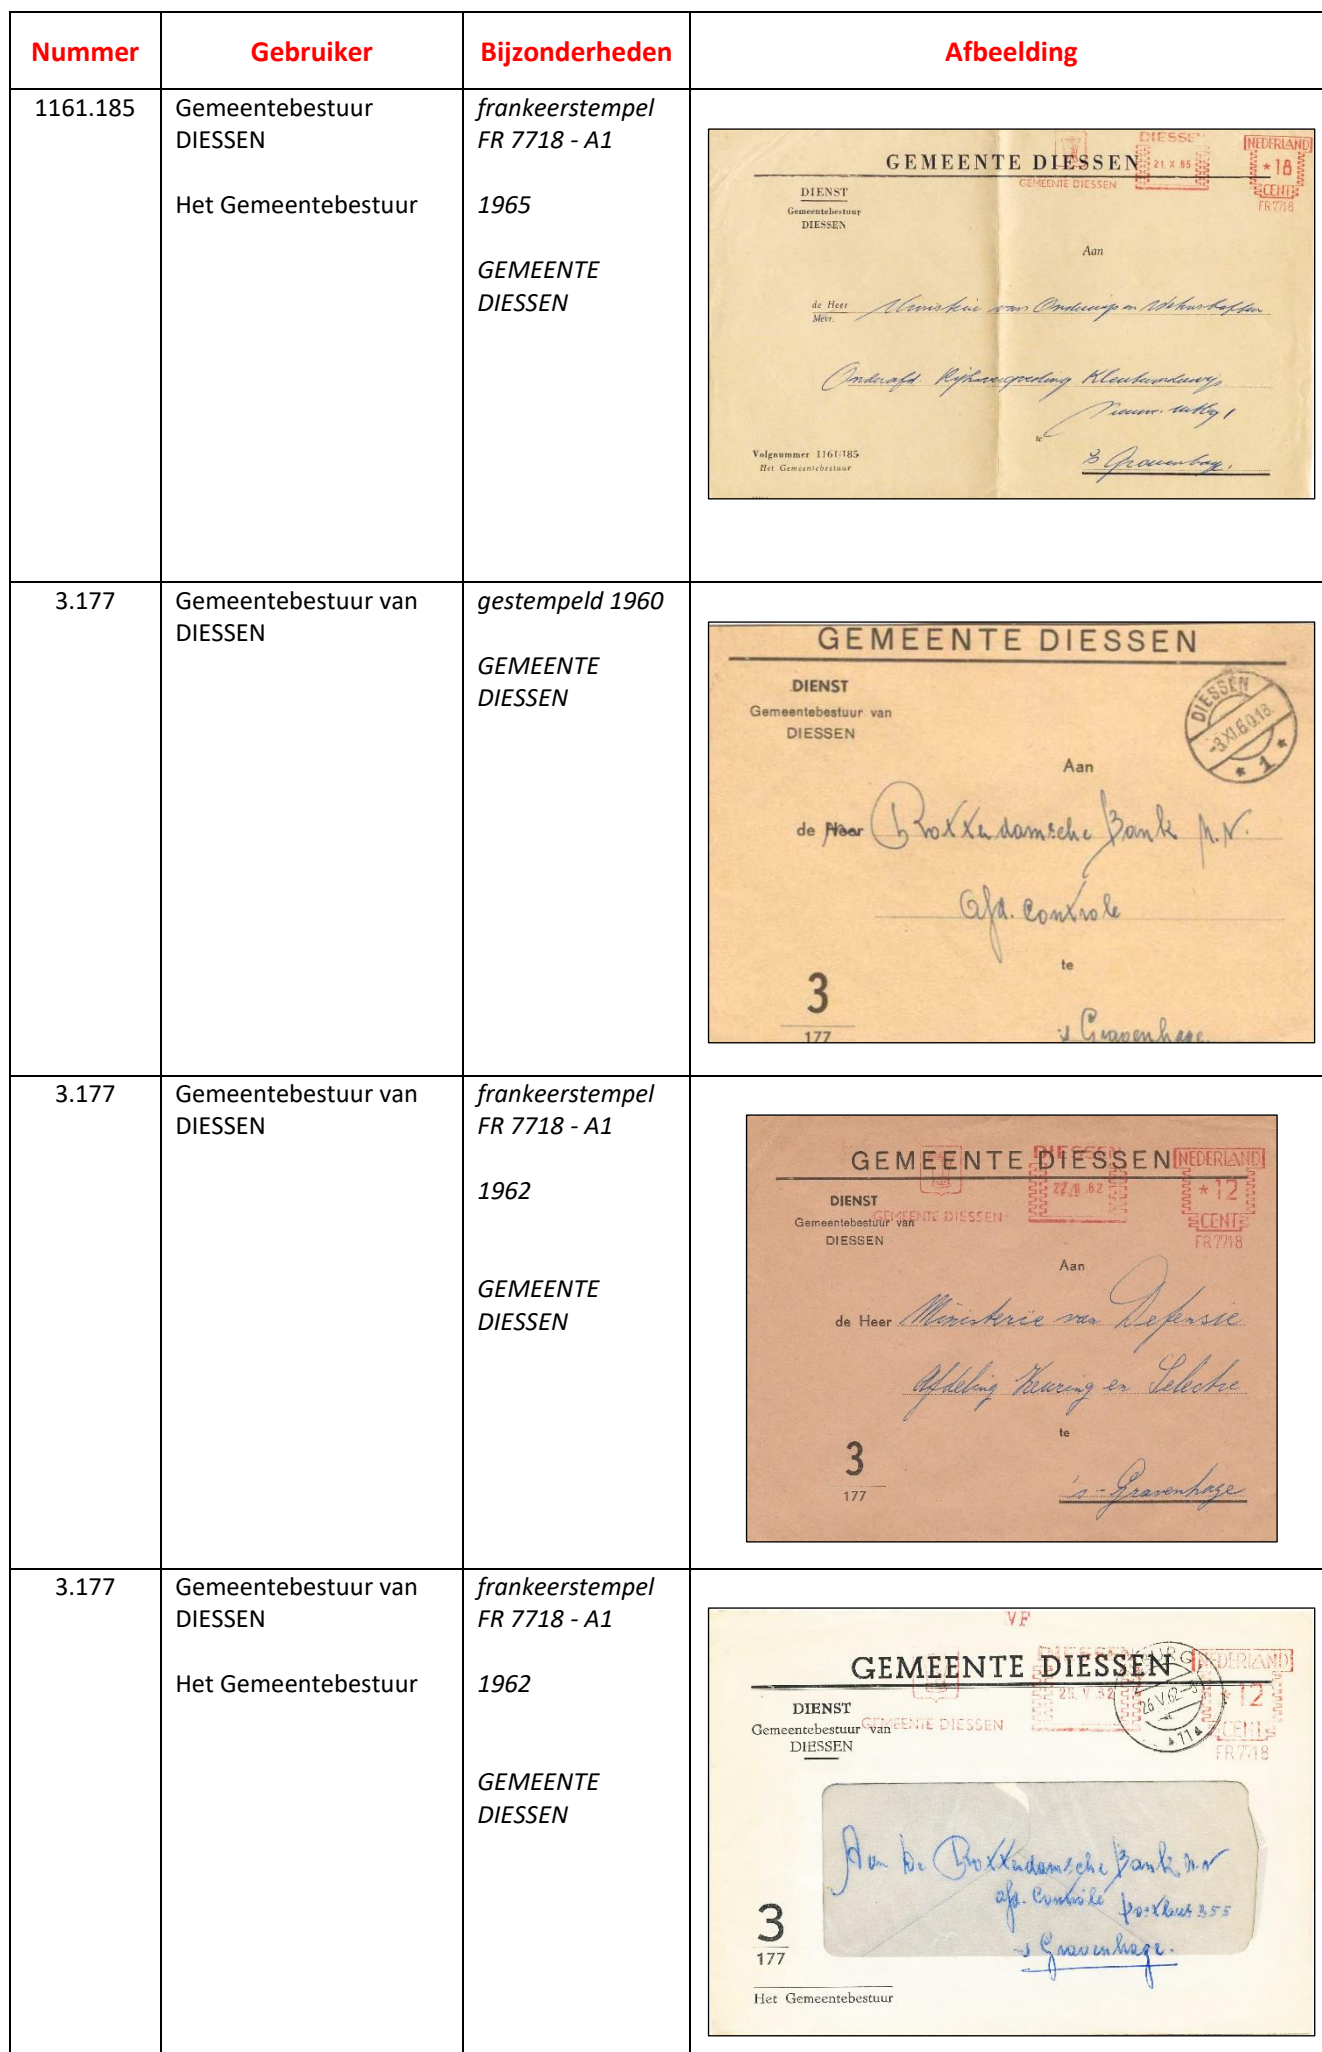 Nummer Gebruiker Bijzonderheden Afbeelding
1161.185
Gemeentebestuur
DIESSEN
Het Gemeentebestuur
frankeerstempel
FR 7718 - A1
1965
GEMEENTE
DIESSEN
DIESSEN
NEDERLAND
GEMEENTE DIESSEN
21. X .65
*18
GEMEENTE DIESSEN
CENT
FR 7718
DIENST
Gemeentebestuur
DIESSEN
Aan
de Heer
Mevr.
Ministerie van Onderwijs en Wetenschappen
Onderafd. Rijksvergoeding Kleuteronderwijs
te
's Gravenhage,
Volgnummer 1161/185
Het Gemeentebestuur
3.177
Gemeentebestuur van
DIESSEN
gestempeld 1960
GEMEENTE
DIESSEN
GEMEENTE DIESSEN
DIENST
Gemeentebestuur van
DIESSEN
DIESSEN
-3.XI.60.18.
* 1 *
Aan
de Heer Rotterdamsche Bank N.V.
afd. Controle
te
3
177
's Gravenhage
3.177
Gemeentebestuur van
DIESSEN
frankeerstempel
FR 7718 - A1
1962
GEMEENTE
DIESSEN
GEMEENTE DIESSEN
DIESSEN
NEDERLAND
*12
CENT
FR 7718
GEMEENTE DIESSEN
DIENST
Gemeentebestuur van
DIESSEN
Aan
de Heer Ministerie van Defensie
Afdeling Keuring en Selectie
te
3
177
's-Gravenhage
3.177
Gemeentebestuur van
DIESSEN
Het Gemeentebestuur
frankeerstempel
FR 7718 - A1
1962
GEMEENTE
DIESSEN
VF
GEMEENTE DIESSEN
DIESSEN
NEDERLAND
25. V .62
26 V.62
*12
CENT
FR 7718
GEMEENTE DIESSEN
DIENST
Gemeentebestuur van
DIESSEN
Aan De Rotterdamsche Bank N.V
afd. Controle postbus 355
's Gravenhage.
3
177
Het Gemeentebestuur